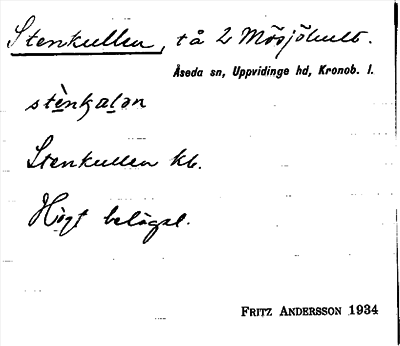 Stenkullen, tå 2 Mösjöhult.
Åseda sn, Uppvidinge hd, Kronob. l.
Stenkullen kb.
Högt belägel.
FRITZ ANDERSSON 1934